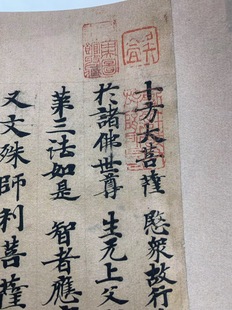 十方大菩薩 愍衆故行
於諸佛世尊 生无上父
苐三法如是 智者應
又文殊師利菩薩